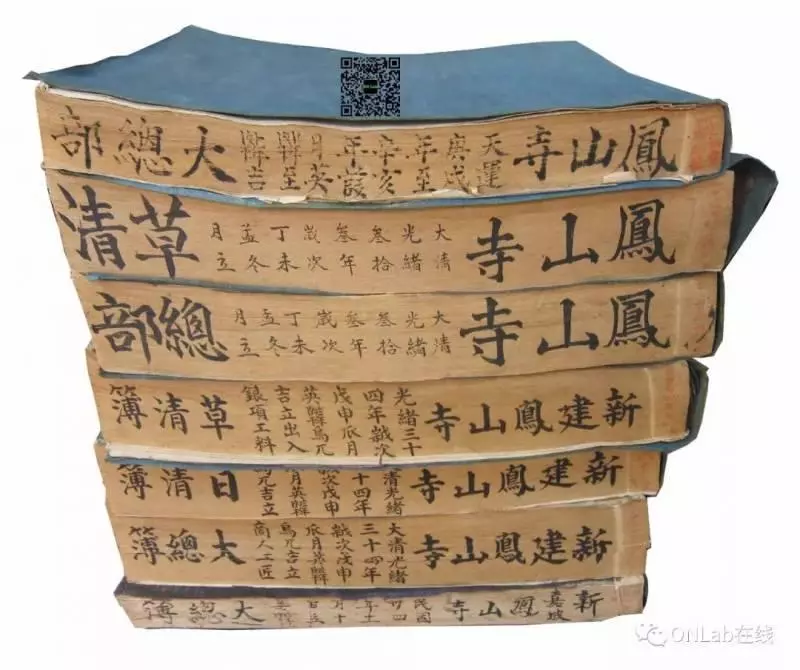 鳳山寺 天運庚戌年至辛亥年葭月英 吉 大總部
鳳山寺 大清光緒叁拾叁年歲次丁未孟冬月立 草清
鳳山寺 大清光緒叁拾叁年歲次丁未孟冬月立 總部
新建鳳山寺 光緒三十四年歲次戊申瓜月英韡烏兀吉立出入銀項工料 草清簿
新建鳳山寺 清光緒十四年歲次戊申月英韡烏兀吉立 日清簿
新建鳳山寺 大清光緒三十四年歲次戊申瓜月英韡烏兀吉立商人工匠 大總簿
新嘉坡鳳山寺 民國廿四年 月十 大總簿
ONLab在线